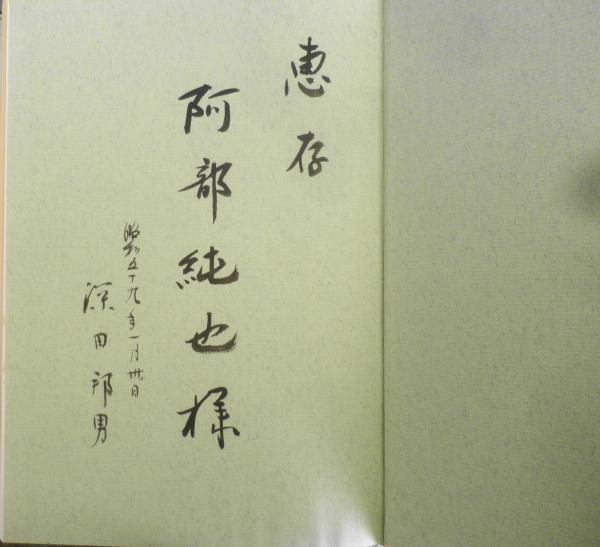 恵存
阿部純也様
昭和五十九年一月卅日
深田邦男